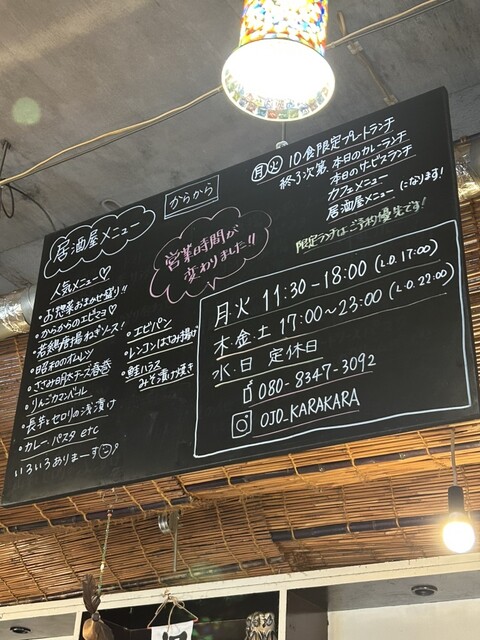 からから
居酒屋メニュー
人気メニュー♡
・お惣菜おまかせ盛り!!
・からからのエビマヨ♡
・若鶏唐揚ねぎソース!
・昭和のオムレツ
・ささみ明太チーズ春巻
・りんごカマンベール
・長芋とセロリの浅漬け
・カレー、パスタ etc
いろいろありまーす
・エビパン
・レンコンはさみ揚げ
・鮭ハラス
みそ漬け焼き
営業時間が
変わりました!!
月火 10食限定プレートランチ
終了次第 本日のカレーランチ
本日のサービスランチ
カフェメニュー
居酒屋メニュー になります!
限定ランチはご予約優先です!
月・火 11:30-18:00 (L.O.17:00)
木・金・土 17:00~23:00 (L.O.22:00)
水・日 定休日
080-8347-3092
OJO_KARAKARA